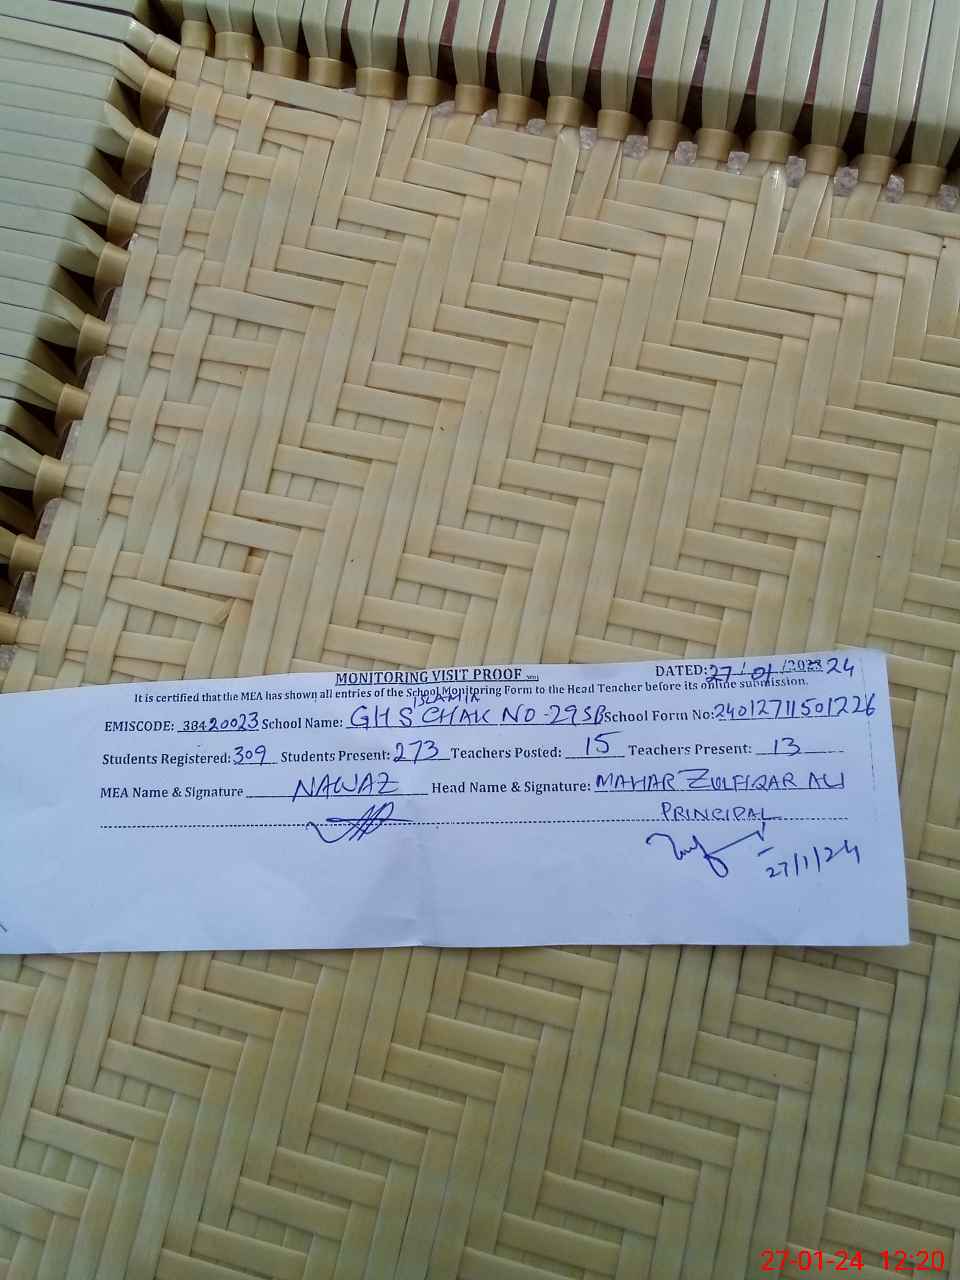 MONITORING VISIT PROOF
DATED: 27/01/2023 24
It is certified that the MEA has shown all entries of the School Monitoring Form to the Head Teacher before its online submission.
ISLAMIA
EMISCODE: 38420023 School Name: GHS CHAK NO-29SB School Form No: 24012711501226
Students Registered: 309 Students Present: 273 Teachers Posted: 15 Teachers Present: 13
MEA Name & Signature NAWAZ Head Name & Signature: MAHAR ZULFIQAR ALI
PRINCIPAL
27/1/24
27-01-24 12:20